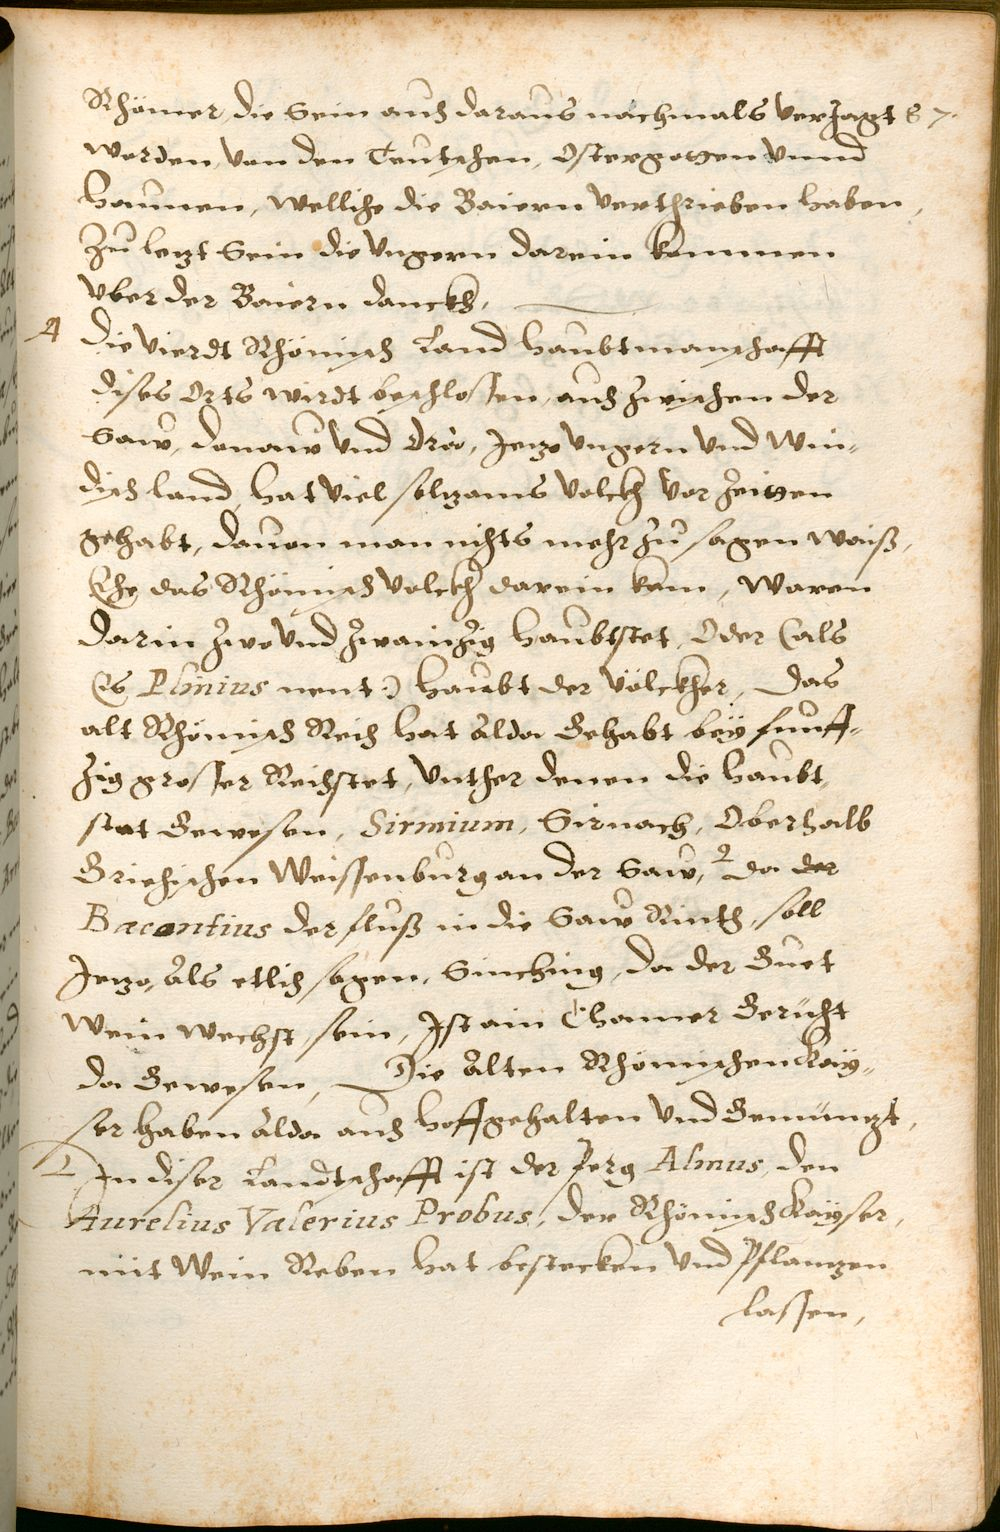 Rhömer, die Sein auch daraus nachmals verJagt 67.
worden, von den Teutschen, Ostergotten vnnd
Haunen, Welliche die Baiern verthrieben haben,
Zu letzt Sein die Vngern darein kommen
vber der Baiern danckh,
A die vierdt Rhömisch Land Haubtmanschafft
dises Orts wirdt beschlossen, auch zwischen der
Saw, donaw vnd Dra, Jetzo Vngern vnd Win-
disch land, hat viel seltzams Volckh vor Zeitten
gehabt, dauon man nichts mehr zu sagen waiß,
Ehe das Rhömisch Volckh darein kam, Waren
darin Zwo vnd Zwainzig Haubtstet, Oder (als
Es Plinius nent:) Haubt der Völckher, Das
alt Rhömisch Reich hat Alda Gehabt bey funff-
zig grosser Reichstet, Vnther denen die Haubt
statt Gewesen, Sirmium, Sirnach, Oberhalb
Griechischen Weissenburg an der Saw, da der
Bacantius der fluß in die Saw Rinth, soll
Jetzo, Als etlich sagen, Sirching, da der Guet
Wein Wechst, sein, Ist ain Chamer Gericht
da Gewesen, Die Alten Rhömischen Kay-
ser haben Alda auch hoffgehalten vnd Gemüntzt,
In diser Landtschafft ist der Perg Almus, den
Aurelius Valerius Probus, der Rhömisch Kayser,
mit Wein Reben hat bestecken vnd Pflantzen
lassen,